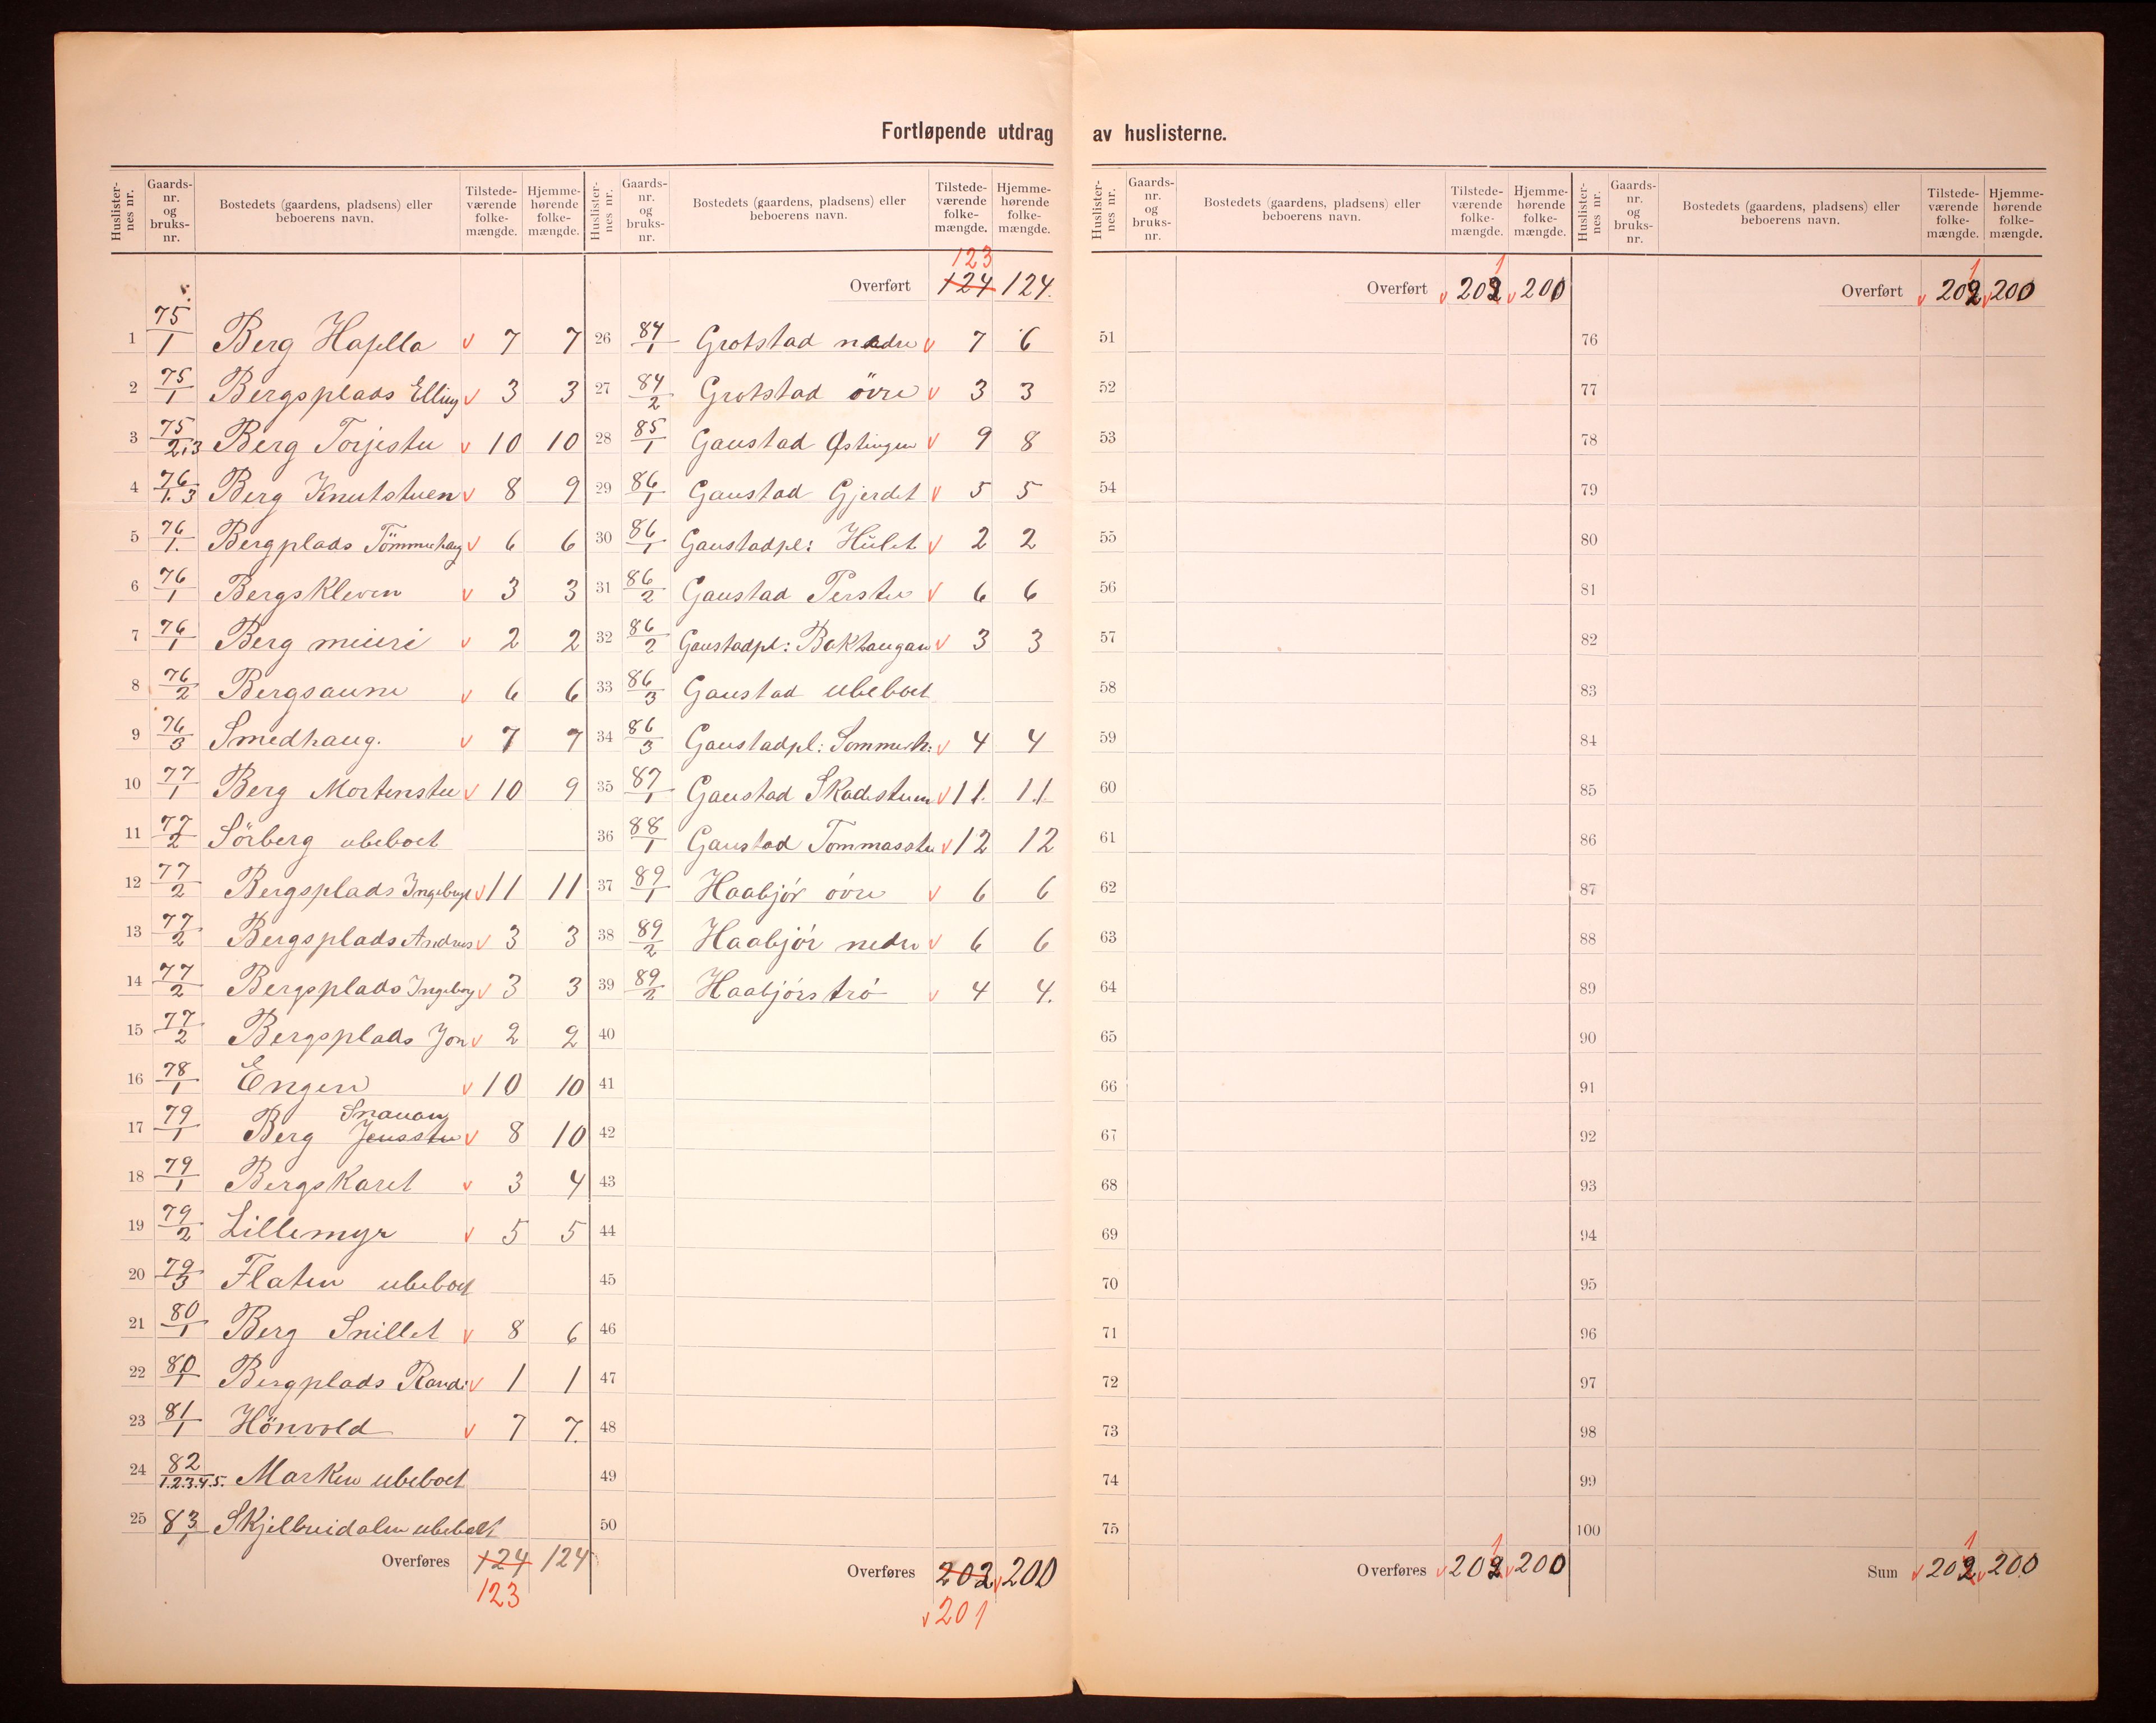 Fortløpende utdrag av huslisterne.
Huslister-nes nr. Gaards-nr. og bruks-nr. Bostedets (gaardens, pladsens) eller beboerens navn. Tilstede-værende folke-mængde. Hjemme-hørende folke-mængde.
1 75/1 Berg v 7 7
2 75/1 Bergsplads Elling v 3 3
3 75/2,3 Berg Torjestu v 10 10
4 76/1.3 Berg Knutstuen v 8 9
5 76/1. Bergplads Tömmerhaug v 6 6
6 76/1 Bergskleven v 3 3
7 76/1 Berg meieri v 2 2
8 76/2 Bergsaune v 6 6
9 76/3 Smedhaug. v 7 7
10 77/1 Berg Mortenstu v 10 9
11 77/2 Sörberg ubeboet
12 77/2 Bergsplads v 11 11
13 77/2 Bergsplads Andreas v 3 3
14 77/2 Bergsplads Ingeborg v 3 3
15 77/2 Bergsplads Jon v 2 2
16 78/1 Engen v 10 10
Snauan
17 79/1 Berg Jensstu v 8 10
18 79/1 Bergskaret v 3 4
19 79/2 Lillemyr v 5 5
20 79/3 Flaten ubeboet
21 80/1 Berg Snillet v 8 6
22 80/1 Bergplads Randi v 1 1
23 81/1 Hönvold v 7 7.
24 82/1.2.3.4.5. Marken ubeboet
25 83/1 Skjelbreidalen ubeboet
Overføres 124 124
123
Huslister-nes nr. Gaards-nr. og bruks-nr. Bostedets (gaardens, pladsens) eller beboerens navn. Tilstede-værende folke-mængde. Hjemme-hørende folke-mængde.
123
Overført 124 124.
26 84/1 Grotstad nedre v 7 6
27 84/2 Grotstad övre v 3 3
28 85/1 Gaustad Østingen v 9 8
29 86/1 Gaustad Gjerdet v 5 5
30 86/1 Gaustadpl: Hulet v 2 2
31 86/2 Gaustad Perstu v 6 6
32 86/2 Gaustadpl: Bakhaugan v 3 3
33 86/3 Gaustad ubeboet
34 86/3 Gaustadpl: Sommerh: v 4 4
35 87/1 Gaustad Skadestuen v 11. 11.
36 88/1 Gaustad Tommasstu v 12 12
37 89/1 Haabjör övre v 6 6
38 89/2 Haabjör nedre v 6 6
39 89/2 Haabjörströ v 4 4.
40
41
42
43
44
45
46
47
48
49
50
Overføres 202 v 200
v 201
Huslister-nes nr. Gaards-nr. og bruks-nr. Bostedets (gaardens, pladsens) eller beboerens navn. Tilstede-værende folke-mængde. Hjemme-hørende folke-mængde.
1
Overført v 202 v 200
51
52
53
54
55
56
57
58
59
60
61
62
63
64
65
66
67
68
69
70
71
72
73
74
75
1
Overføres v 202 v 200
Huslister-nes nr. Gaards-nr. og bruks-nr. Bostedets (gaardens, pladsens) eller beboerens navn. Tilstede-værende folke-mængde. Hjemme-hørende folke-mængde.
1
Overført v 202 v 200
76
77
78
79
80
81
82
83
84
85
86
87
88
89
90
91
92
93
94
95
96
97
98
99
100
1
Sum v 202 v 200